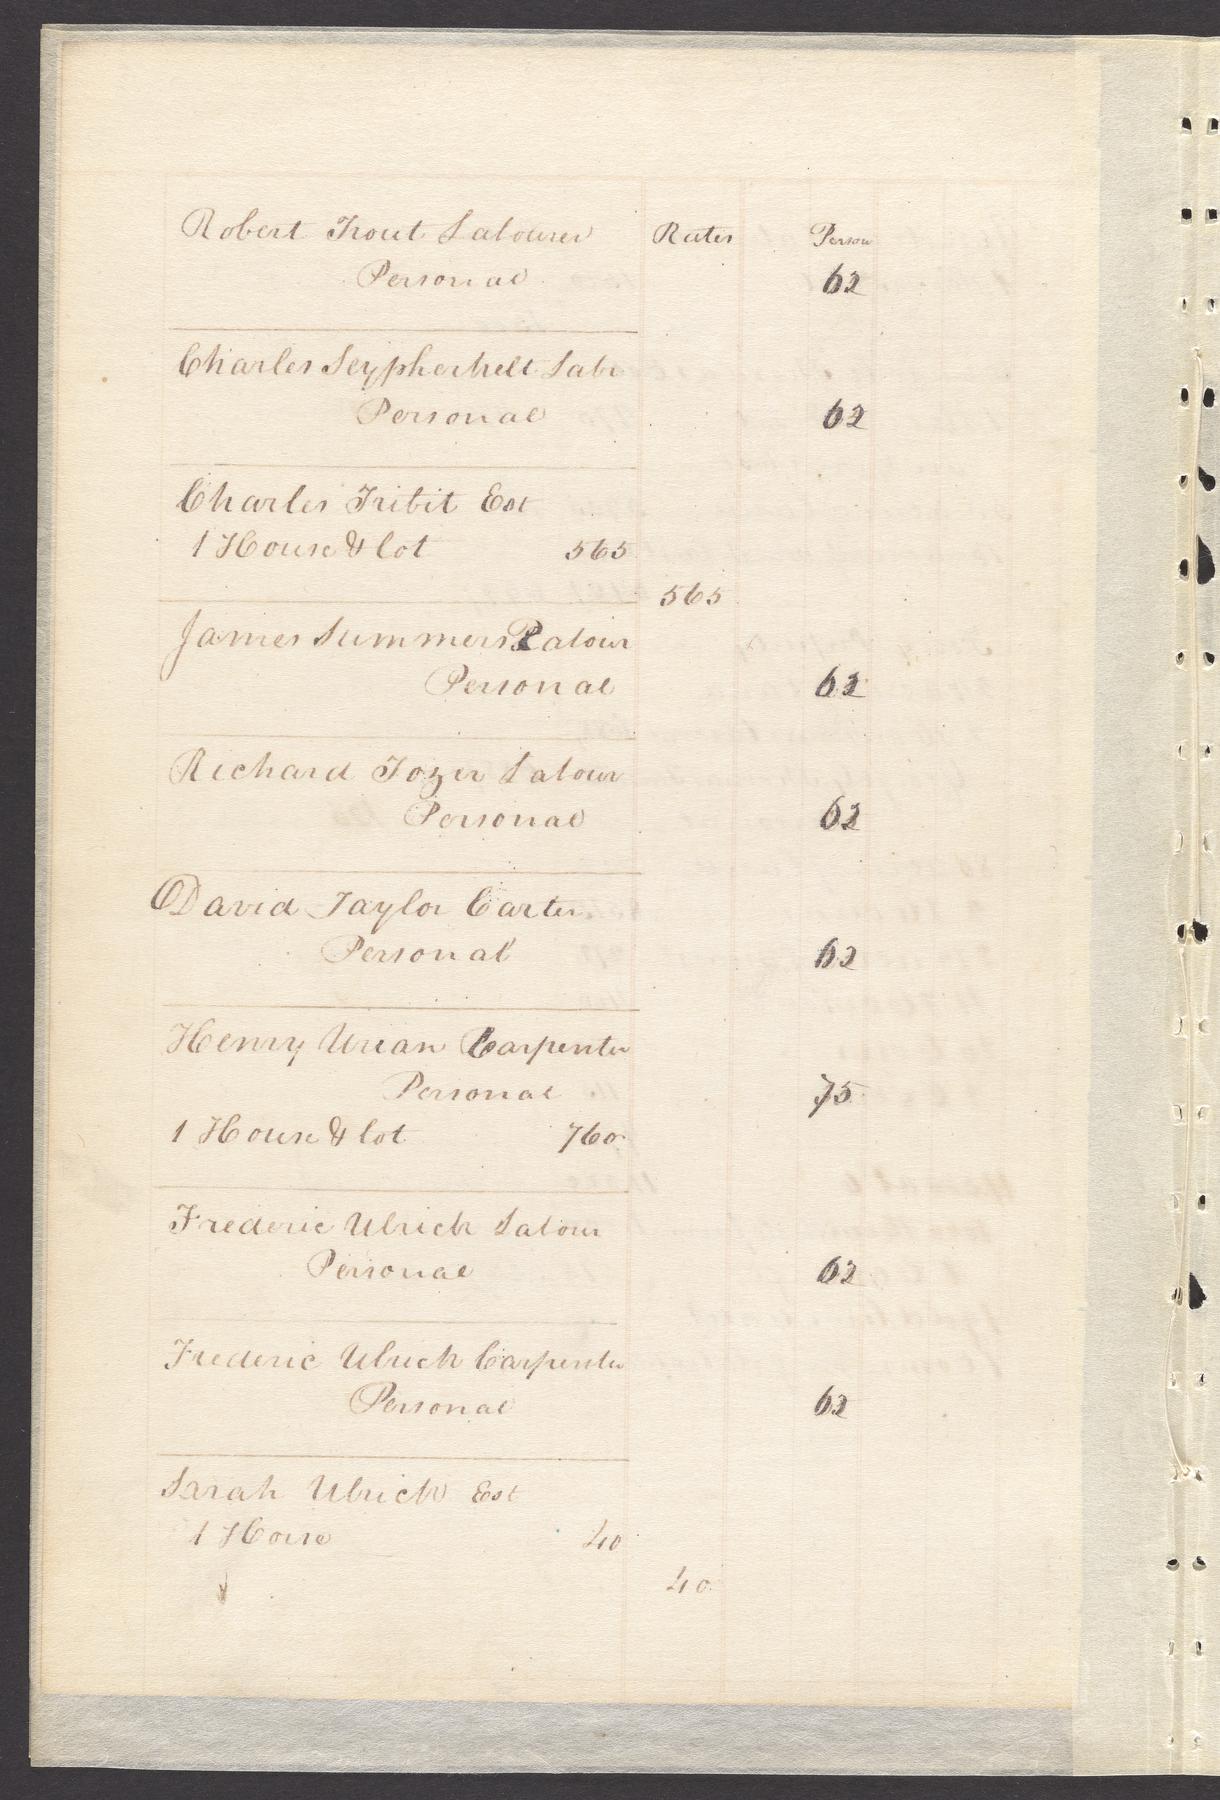 Robert Trout Labourer Rates Person
Personal 62
Charles Seypherhelt Labr
Personal 62
Charles Tribit Est
1 House & lot 565
565
James Summers Labour
Personal 62
Richard Tozer Labour
Personal 62
David Taylor Carter
Personal 62
Henry Urian Carpenter
Personal 75
1 House & lot 760
Frederic Ulrich Labour
Personal 62
Frederic Ulrich Carpenter
Personal 62
Sarah Ulrich Est
1 Horse 40
40